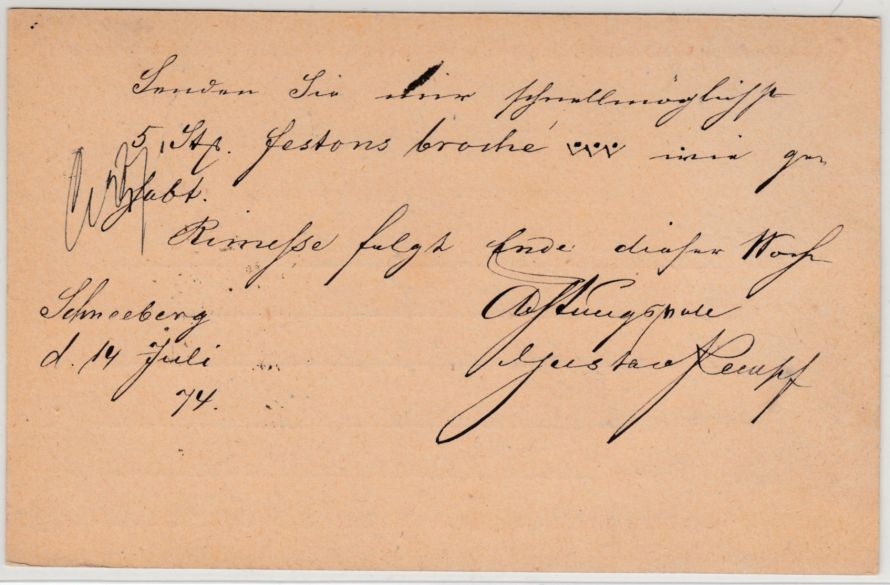 Senden Sie mir schnellmöglichst
5 Stp. festons broché wie ge
habt.
Rimesse folgt Ende dieser Woche
Achtungsvoll
Gustav Kempf
Schneeberg
d. 14 Juli
74.